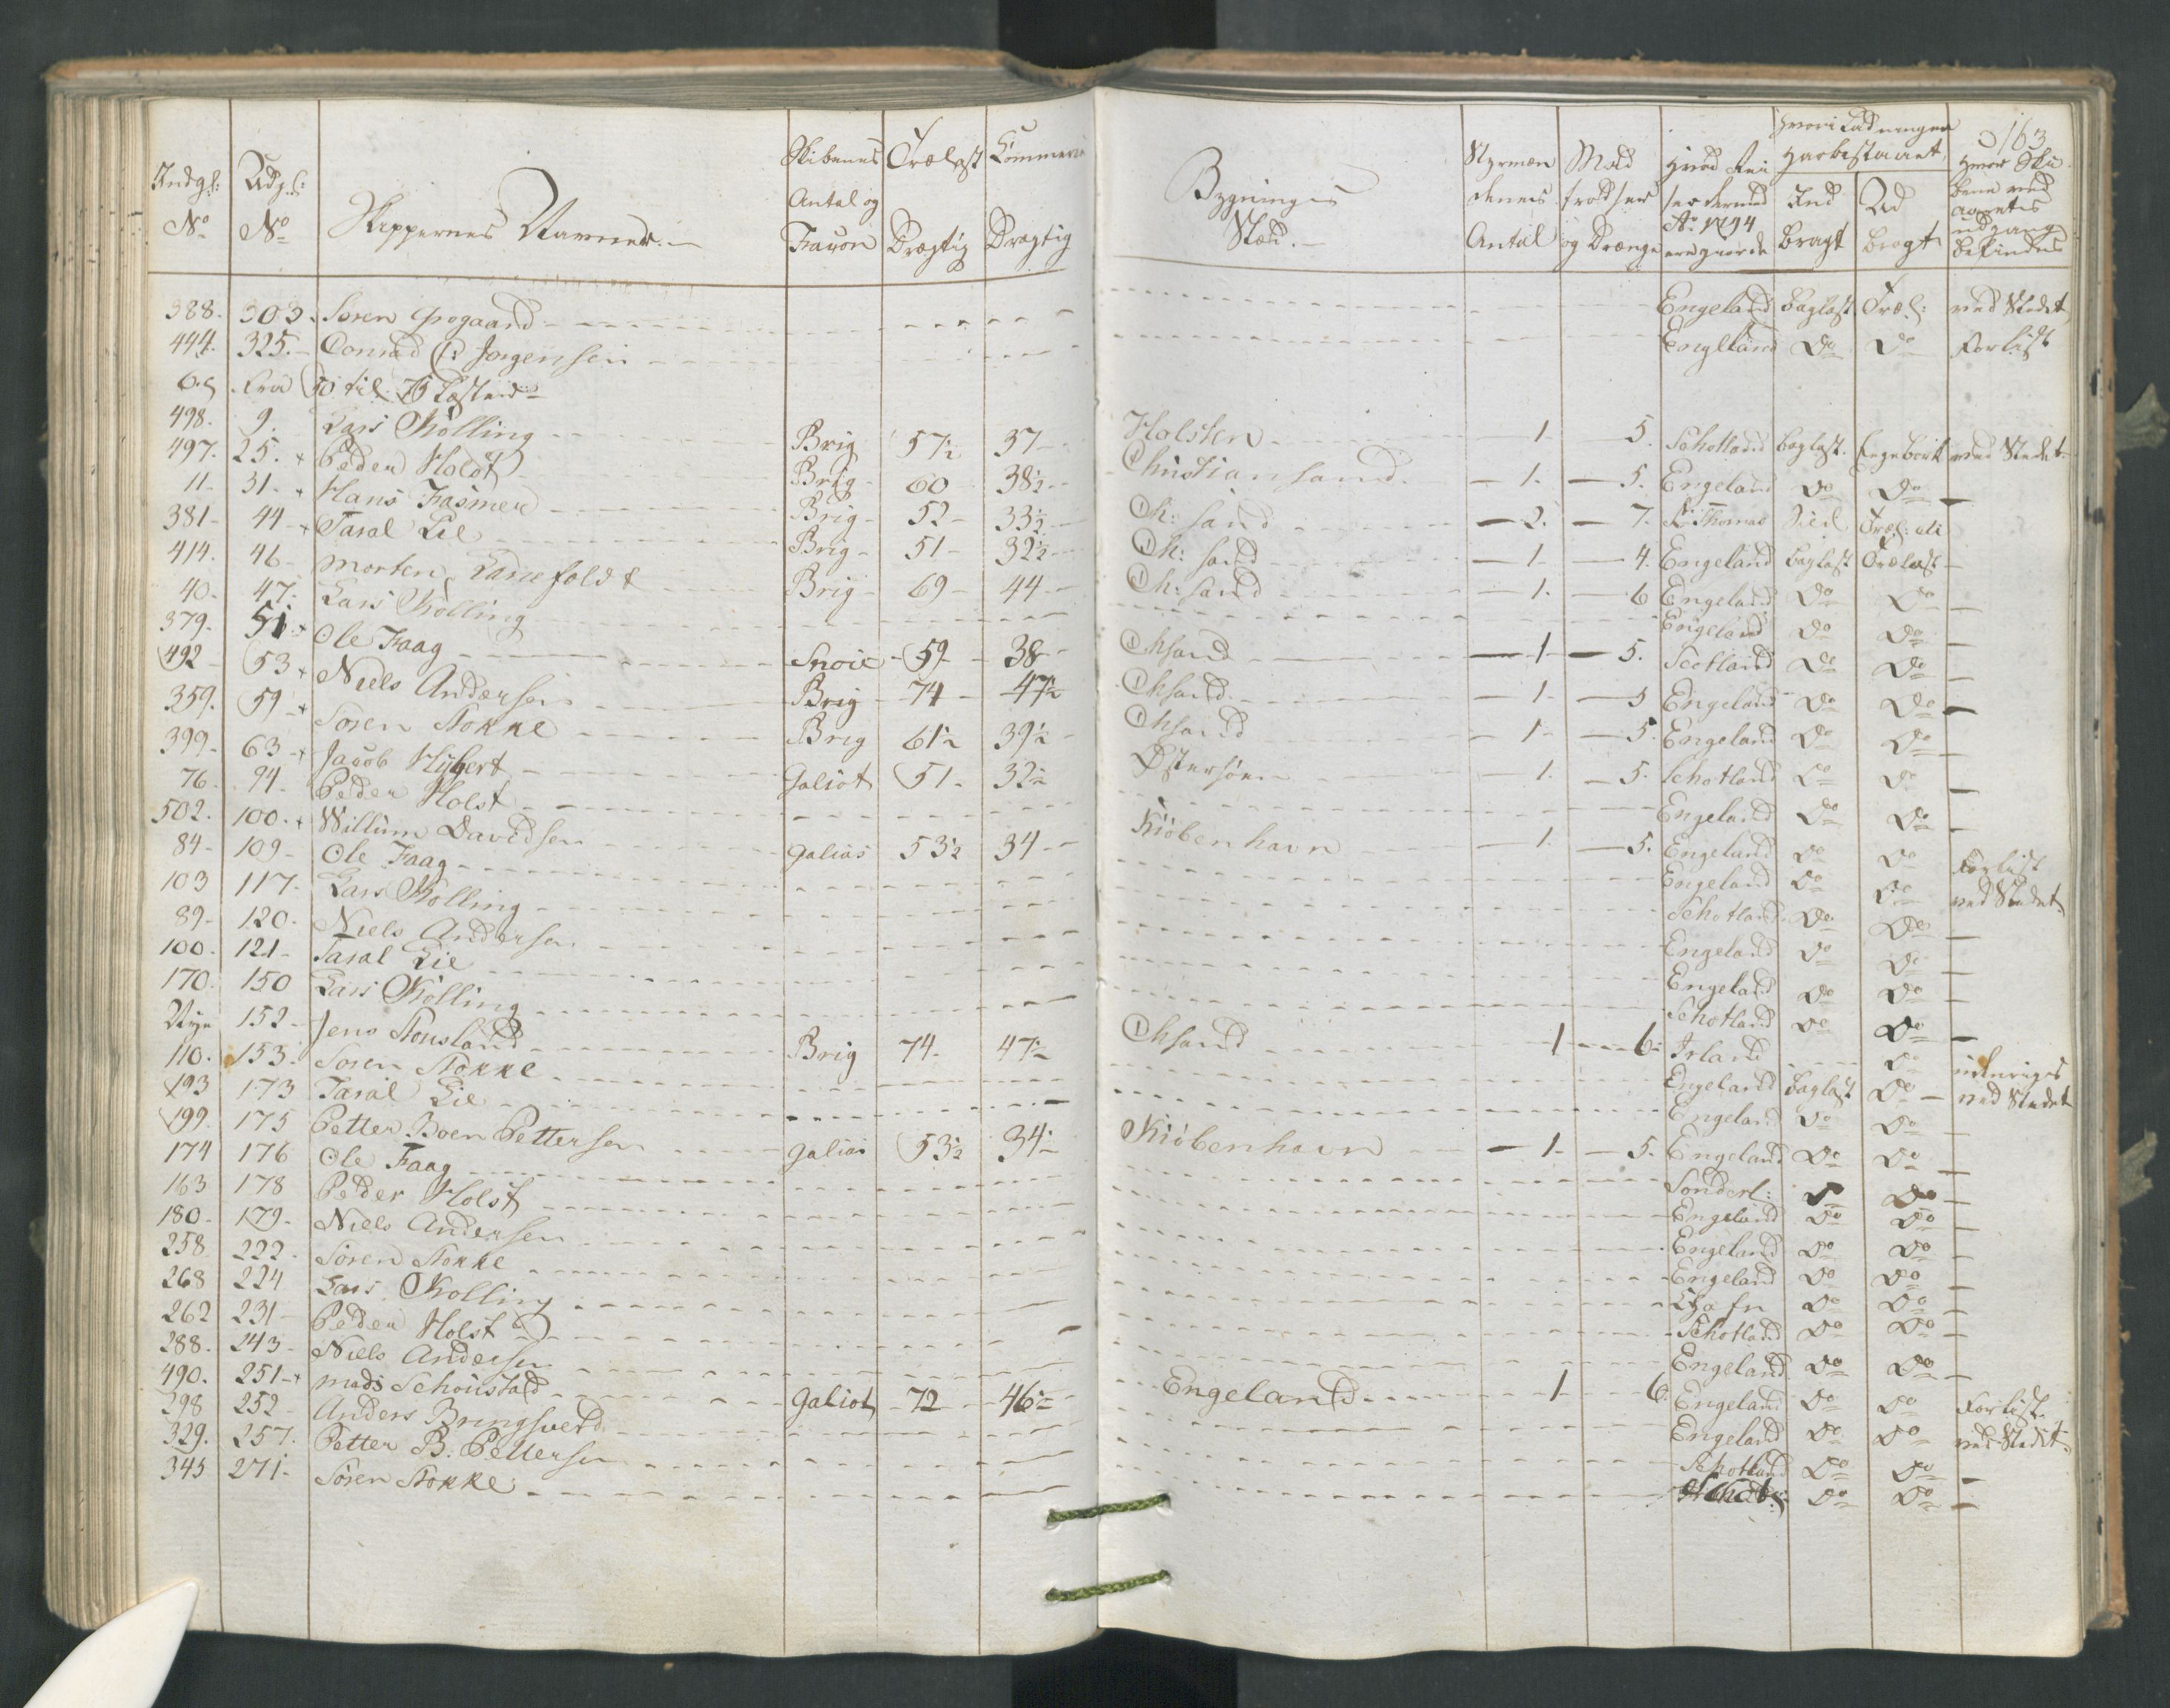 163
Indgl: No
Udgl: No
Skippernes Navner.
Skibenes Antal og Façon
Trælest Drægtig
Commerce Drægtig
Bygningis Stæd.
Styrmændenes Antal
Madtrodser og Drænge
Hvad Reiser dermed Ao 1794 ere giorde
Hvori Ladningen har bestaaet
Ind bragt
Ud bragt
Hvor Skibene ved aarets udgang befindes
388. 303. Søren - - - Engeland Baglast Træl: ved Stedet
444. 325. Conrad C: Jørgensen - - - Engelland Do Do Forlist
og fra 50 til 75 Læster
498. 9. Lars Kølling Brig 57½ 37 Holsten 1 5. Schotland Baglast ved Stedet
497. 25. Peder Holst Brig 60 38½ Christiansand 1. 5. Engeland Do Do
11 31 Hans Fasmer Brig 52 33½ Ch: sand 2. 7. St Thomas
381 44 Taral Lie Brig 51 32½ Ch: sand 1 4. Engeland Baglast Trælast
414. 46 Morten Lanefeldt Brig 69 44 Ch: sand 1. 6 Engeland Do Do
40. 47. Lars Kølling - - - Engeland Do Do
379. 51. Ole Faag Snoie 59 38 Chsand 1 5. Scotland Do Do
492 53 Niels Andersen Brig 74 47½ Chsand 1 5 Engeland Do Do
359. 59 Søren Stokke Brig 61½ 39½ Chsand 1 5. Engeland Do Do
399. 63 Jacob Hybert Galiot 51 32½ Østersøen 1. 5. Schotland Do Do
76. 94 Peder Holst - - - Engeland Do Do
502. 100. Willum Davidsen Galias 53½ 34 Kiøbenhavn 1. 5. Engeland Do Do Forlist
84 109 Ole Faag - - - Engeland Do Do ved Stedet
103 117. Lars Kølling - - - Schotland Do Do
89 120. Niels Andersen - - - Engeland Do Do
100. 121 Taral Lie - - - Engeland Do Do
170. 150 Lars Kølling - - - Schotland Do Do
Nye 152 Jens Stousland Brig 74 47½ Chsand 1 6 Irland - Do udenrigs
110. 153. Søren Stokke - - - Engeland Baglast Do ved Stedet
193 173 Taral Lie - - - Engeland Do Do
199. 175 Petter Boen Pettersen Galias 53½ 34½ Kiøbenhavn 1 5. Engeland Do Do
174 176 Ole Faag - - - Sonderl: Do
163 178 Peder Holst - - - Engeland Do Do
180. 179. Niels Andersen - - - Engeland Do Do
258 222. Søren Stokke - - - Engeland Do Do
268 224 Lars Kølling - - - Do Do
262 231 Peder Holst - - - Schotland Do Do
288. 243 Niels Andersen - - - Engeland Do Do
490. 251 Mads Schoustad Galiot 72 46½ Engeland 1 6. Engeland Do Do Forlist
298 252 Anders Bringsverd - - - Engeland Do Do ved Stedet
329. 257. Petter B. Pettersen - - - Schotland Do Do
345 271 Søren Stokke - - - Do Do